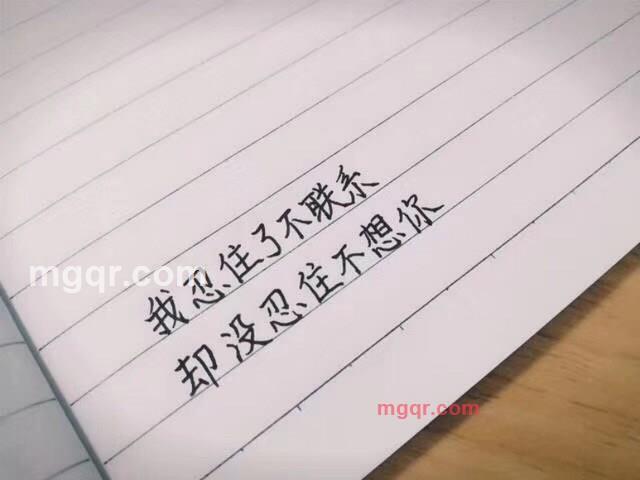 我忍住了不联系
却没忍住不想你
mgqr.com
mgqr.com